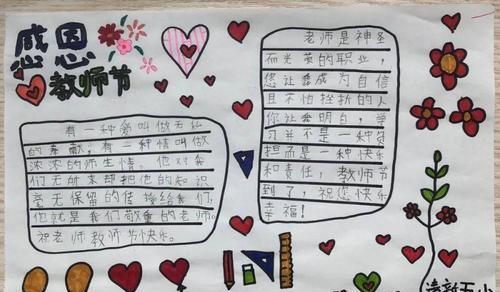 感恩
教师节
有一种爱叫做无私
的奉献；有一种情叫做
浓浓的师生情。他对我
们无所求却把他的知识
毫无保留的传授给我们，
他就是我们敬重的老师。
祝老师教师节快乐。
老师是神圣
而光荣的职业，
您让我成为自信
且不怕挫折的人
你让我明白，学
习并不是一种负
担而是一种快乐
和责任，教师节
到了，祝您快乐
幸福！
清新五小